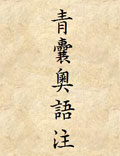 青囊奧語注